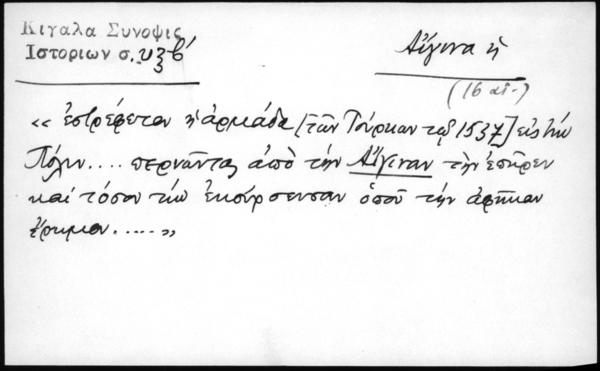 Κιγαλα Συνοψις
Ιστοριων σ. υξβ´
Αἴγινα ἡ
(16 αἰ.)
« ἐστρέφεταν ἡ ἀρμάδα [τῶν Τούρκων τῷ 1537] εἰς τὴν
Πόλιν.... περνῶντας ἀπὸ τὴν Αἴγιναν τὴν ἐπῆρεν
καὶ τόσον τὴν ἐκούρσευσαν ὁποῦ τὴν ἀφῆκαν
ἔρημον..... »